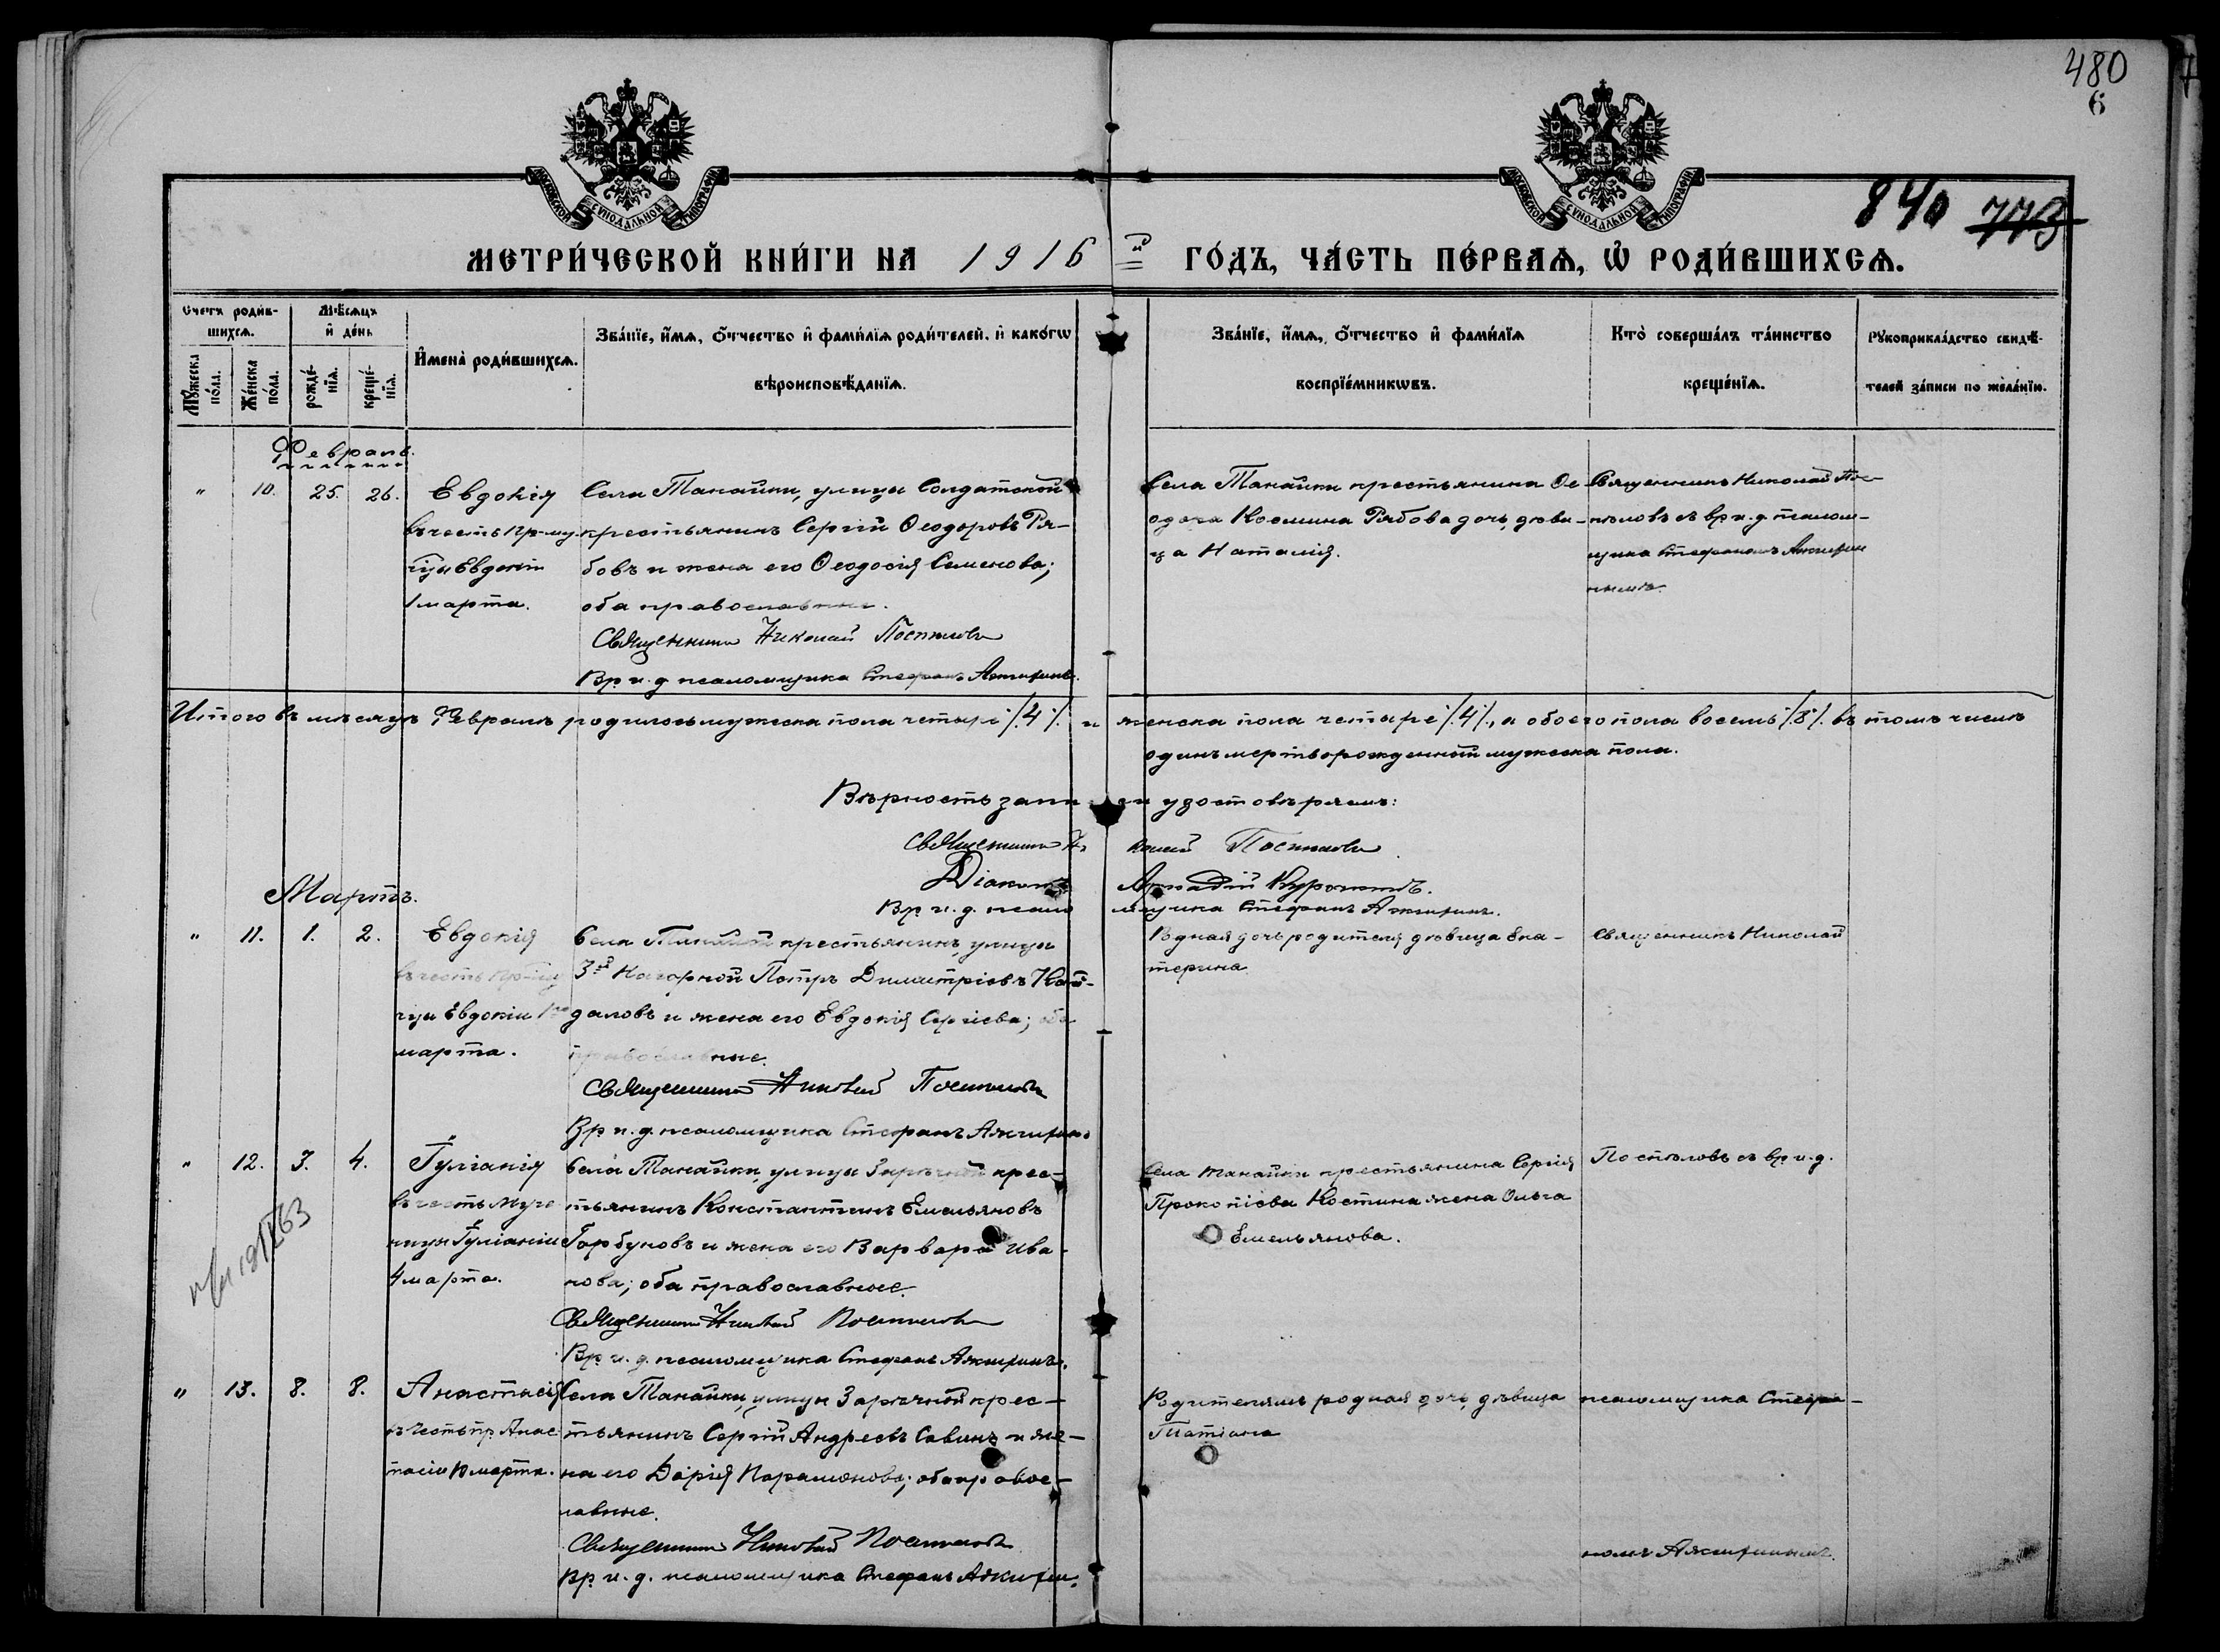 480
6
7
МОСКОВСКОЙ СѴНОДАЛЬНОЙ ТИПОГРАФІИ
МОСКОВСКОЙ СѴНОДАЛЬНОЙ ТИПОГРАФІИ
840 773
МЕТРИ́ЧЕСКОЙ КНИ́ГИ НА 1916 й ГО́ДЪ, ЧА́СТЬ ПЕ́РВАѦ, Ѡ҆ РОДИ́ВШИХСѦ.
Счетъ роди́в-
шихсѧ.
Мꙋ́жеска по́ла.
Же́нска по́ла.
Мѣ́сѧцъ
и҆ де́нь
рожде́-нїѧ.
креще́-нїѧ.
И҆мена̀ роди́вшихсѧ.
Зва́нїе, и҆́мѧ, ѻ҆́тчество и҆ фами́лїѧ роди́телей, и҆ како́гѡ
вѣроисповѣ́данїѧ.
Зва́нїе, и҆́мѧ, ѻ҆́тчество и҆ фами́лїѧ
воспрїе́мникѡвъ.
Кто̀ соверша́лъ та́инство
креще́нїѧ.
Рꙋкоприкла́дство свидѣ́-
телей за́писи по жела́нїю.
Февраль.
" 10. 25. 26.
Евдокія
въ честь пр-му-
ч-цы Евдокіи
1 марта.
Села Танайки, улицы Солдатской
крестьянинъ Сергій Ѳеодоровъ Ря-
бовъ и жена его Ѳеодосія Семенова;
оба православные.
Священникъ Николай Поспѣловъ
Вр. и. д. псаломщика Стефанъ Ажгиринъ.
Села Танайки крестьянина Ѳе-
одора Космина Рябова дочь, дѣви-
ца Наталія.
Священникъ Николай Пос-
пѣловъ съ вр. и. д. псалом-
щика Стефаномъ Ажгири
нымъ.
Итого въ мѣсяцѣ Февралѣ родилось мужеска пола четыре /.4./. и женска пола четыре /.4./., а обоего пола восемь /.8./. въ томъ числѣ
одинъ мертворожденный мужеска пола.
Вѣрность записи удостовѣряемъ:
Священникъ Николай Поспѣловъ
Діаконъ Аркадій
Вр. и. д. псаломщика Стефанъ Ажгиринъ.
Мартъ.
" 11. 1. 2.
Евдокія
въ честь пр-му
ч-цы Евдокіи 1го
марта.
Села Танайки крестьянинъ, улицы
3-й Нагорной Петръ Димитріевъ Кай-
даловъ и жена его Евдокія Сергіева; оба
православные.
Священникъ Николай Поспѣловъ
Вр. и. д. псаломщика Стефанъ Ажгиринъ
Родная дочь родителя дѣвица Ека-
терина
Священникъ Николай
" 12. 3. 4.
Іуліанія
въ честь муче
ницы Іуліаніи
4 марта.
Села Танайки, улицы Зарѣчной крес-
тьянинъ Константинъ Емельяновъ
Горбуновъ и жена его Варвара Ива-
нова; оба православные.
Священникъ Николай Поспѣловъ
Вр. и. д. псаломщика Стефанъ Ажгиринъ.
Села Танайки крестьянина Сергія
Прокопіева Костина жена Ольга
Емельянова.
Поспѣловъ съ вр. и. д.
" 13. 8. 8.
Анастасія
въ честь пр. Анас-
тасіи 10 марта.
Села Танайки, улицы Зарѣчной крес-
тьянинъ Сергій Андреевъ Савинъ и же-
на его Дарія Парамонова; оба правос-
лавные.
Священникъ Николай Поспѣловъ
Вр. и. д. псаломщика Стефанъ Ажгирин.
Родителямъ родная дочь, дѣвица
Татіана
псаломщика Стефа-
номъ Ажгиринымъ.